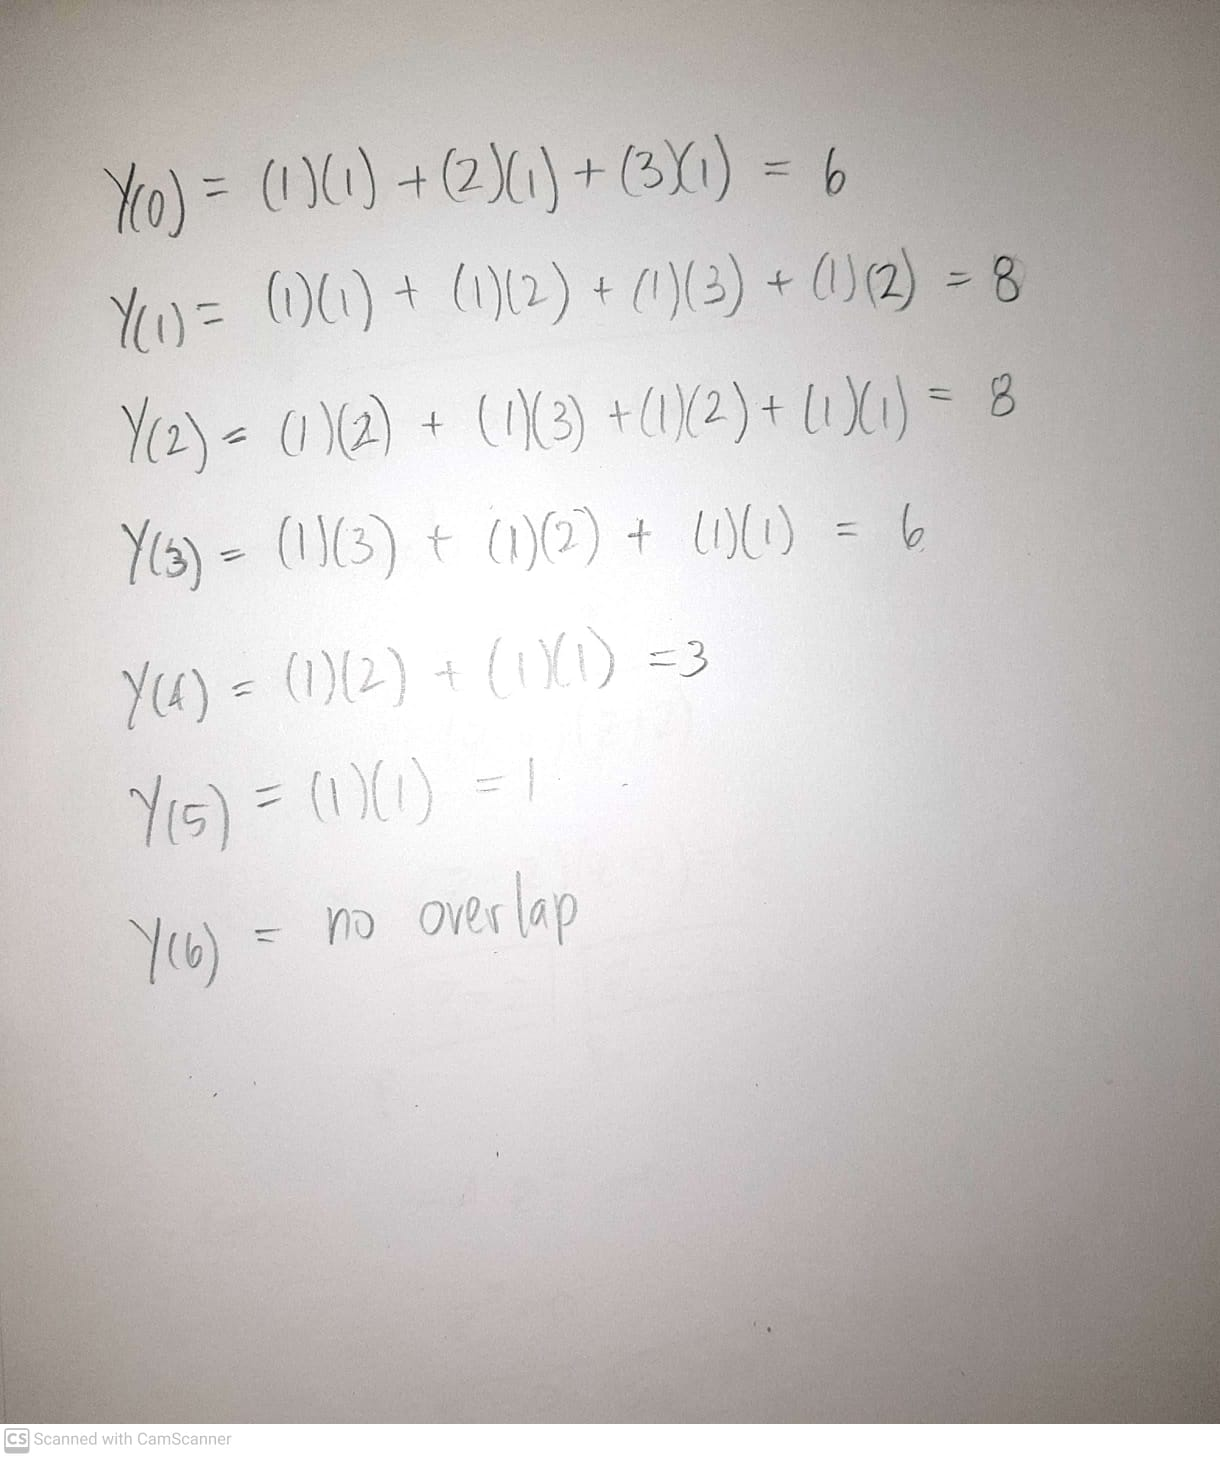 Y(0) = (1)(1) + (2)(1) + (3)(1) = 6
Y(1) = (1)(1) + (1)(2) + (1)(3) + (1)(2) = 8
Y(2) = (1)(2) + (1)(3) + (1)(2) + (1)(1) = 8
Y(3) = (1)(3) + (1)(2) + (1)(1) = 6
Y(4) = (1)(2) + (1)(1) = 3
Y(5) = (1)(1) = 1
Y(6) = no overlap
CS Scanned with CamScanner